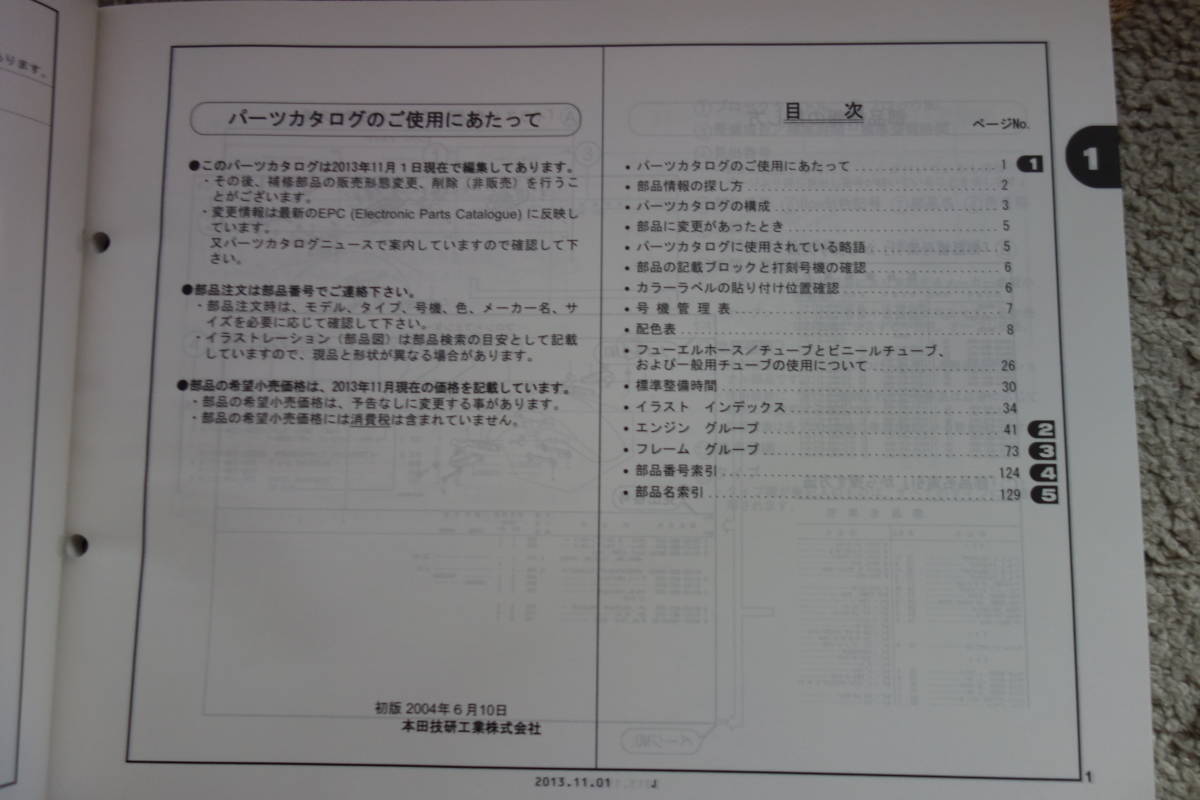 ります。
パーツカタログのご使用にあたって
●このパーツカタログは2013年11月1日現在で編集してあります。
・その後、補修部品の販売形態変更、削除（非販売）を行うこ
とがございます。
・変更情報は最新のEPC (Electronic Parts Catalogue) に反映し
ています。
又パーツカタログニュースで案内していますので確認して下
さい。
●部品注文は部品番号でご連絡下さい。
・部品注文時は、モデル、タイプ、号機、色、メーカー名、サ
イズを必要に応じて確認して下さい。
・イラストレーション（部品図）は部品検索の目安として記載
していますので、現品と形状が異なる場合があります。
●部品の希望小売価格は、2013年11月現在の価格を記載しています。
・部品の希望小売価格は、予告なしに変更する事があります。
・部品の希望小売価格には消費税は含まれていません。
初版 2004年6月10日
本田技研工業株式会社
目 次
ページNo.
・パーツカタログのご使用にあたって 1 1
・部品情報の探し方 2
・パーツカタログの構成 3
・部品に変更があったとき 5
・パーツカタログに使用されている略語 5
・部品の記載ブロックと打刻号機の確認 6
・カラーラベルの貼り付け位置確認 6
・号 機 管 理 表 7
・配色表 8
・フューエルホース／チューブとビニールチューブ、
および一般用チューブの使用について 26
・標準整備時間 30
・イラスト インデックス 34
・エンジン グループ 41 2
・フレーム グループ 73 3
・部品番号索引 124 4
・部品名索引 129 5
1
2013.11.01 J
1